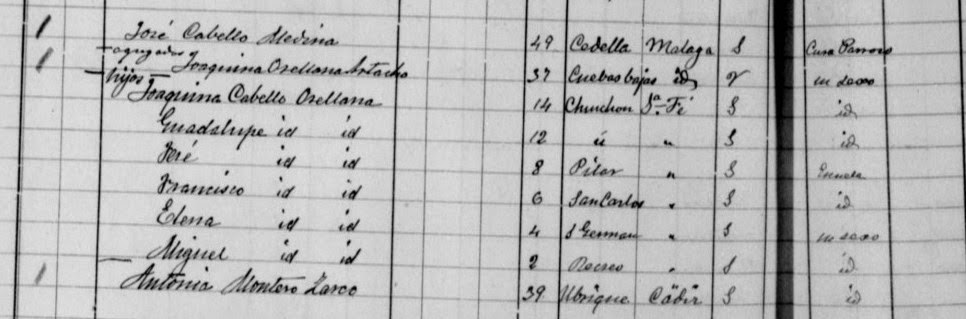 1 José Cabello Medina 49 Cedella Malaga S Cura Parroco
1 agregados Joaquina Orellana Artacho 37 Cuebas bajas id V su sexo
hijos Joaquina Cabello Orellana 14 Chuchon Sta Fé S id
Guadalupe id id 12 id " S id
José id id 8 Pilar " S Escuela
Francisco id id 6 San Carlos " S id
Elena id id 4 S German " S su sexo
Miguel id id 2 Recreo " S id
1 Antonia Montero Zarco 39 Ubrique Cádiz S id